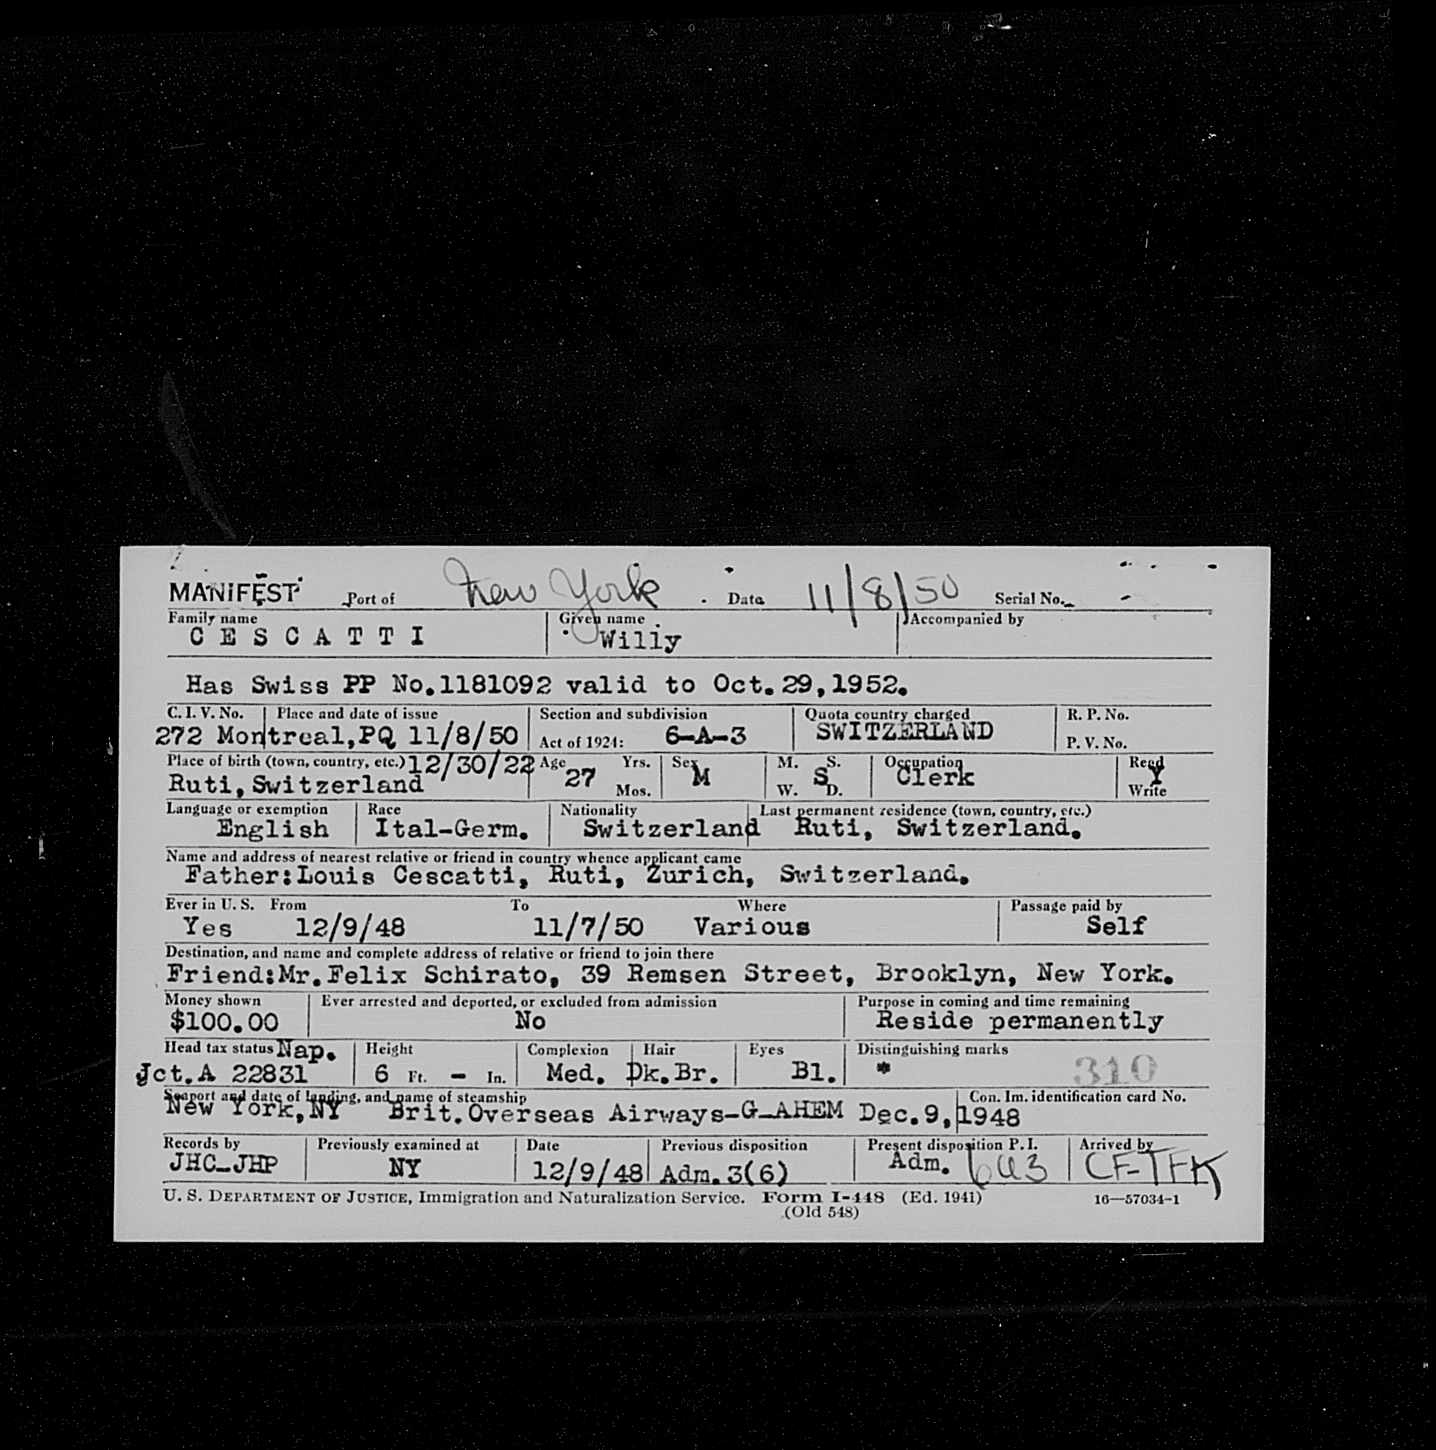 MANIFEST Port of New York Date 11/8/50 Serial No.
Family name Given name Accompanied by
CESCATTI Willy
Has Swiss PP No.1181092 valid to Oct.29,1952.
C. I. V. No. Place and date of issue Section and subdivision Quota country charged R. P. No.
272 Montreal,PQ 11/8/50 Act of 1924: 6-A-3 SWITZERLAND P. V. No.
Place of birth (town, country, etc.) 12/30/22 Age Yrs. Sex M. S. Occupation Read
Ruti, Switzerland 27 Mos. M W. S D. Clerk Y Write
Language or exemption Race Nationality Last permanent residence (town, country, etc.)
English Ital-Germ. Switzerland Ruti, Switzerland.
Name and address of nearest relative or friend in country whence applicant came
Father:Louis Cescatti, Ruti, Zurich, Switzerland.
Ever in U. S. From To Where Passage paid by
Yes 12/9/48 11/7/50 Various Self
Destination, and name and complete address of relative or friend to join there
Friend:Mr.Felix Schirato, 39 Remsen Street, Brooklyn, New York.
Money shown Ever arrested and deported, or excluded from admission Purpose in coming and time remaining
$100.00 No Reside permanently
Head tax status Nap. Height Complexion Hair Eyes Distinguishing marks
Jct.A 22831 6 Ft. - In. Med. Dk.Br. Bl. * 310
Seaport and date of landing, and name of steamship Con. Im. identification card No.
New York,NY Brit.Overseas Airways-G-AHEM Dec.9,1948
Records by Previously examined at Date Previous disposition Present disposition P. I. Arrived by
JHC-JHP NY 12/9/48 Adm.3(6) Adm. 643 CF-TFK
U. S. DEPARTMENT OF JUSTICE, Immigration and Naturalization Service. Form I-448 (Ed. 1941) 16—57034-1
(Old 548)